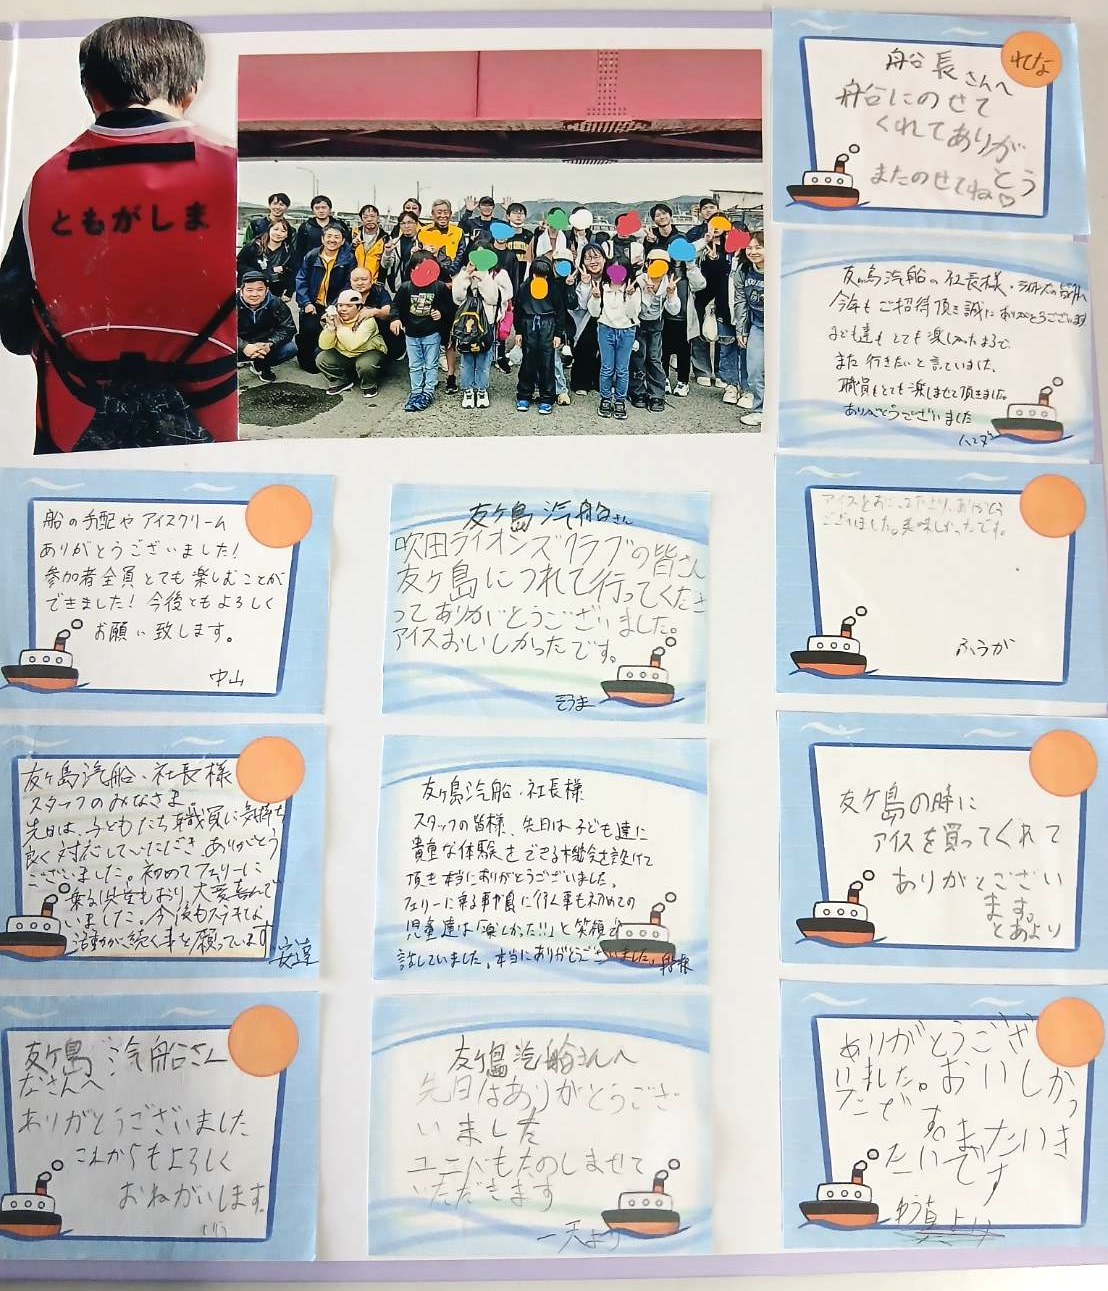 ともがしま
れな
船長さんへ
船にのせて
くれてありが
とう
またのせてね♡
友ヶ島汽船の社長様、
今年もご招待頂き誠にありがとうございます
子ども達もとても楽しかったようで、
また行きたいと言っていました。
職員もとても楽しませて頂きました。
ありがとうございました
船の手配やアイスクリーム
ありがとうございました!
参加者全員とても楽しむことが
できました!今後ともよろしく
お願い致します。
中山
友ヶ島汽船さん
吹田ライオンズクラブの皆さん
友ヶ島につれて行ってくださ
ってありがとうございました。
アイスおいしかったです。
そうま
アイスをおごってくださり、ありがとう
ございました。美味しかったです。
ふうが
友ヶ島汽船、社長様
スタッフのみなさま。
先日は、子どもたち、職員に気持ち
良く対応していただき、ありがとう
ございました。初めてフェリーに
乗る児童もおり、大変喜んで
いました。今後もステキな
活動が続く事を願っています。
安達
友ヶ島汽船、社長様
スタッフの皆様、先日は子ども達に
貴重な体験をできる機会を設けて
頂き本当にありがとうございました。
フェリーに乗る事や島に行く事も初めての
児童達は「楽しかった!!」と笑顔で
話していました。本当にありがとうございました。
友ヶ島の時に
アイスを買ってくれて
ありがとうござい
ます。
とあより
友ヶ島汽船さん
なさんへ
ありがとうございました
これからもよろしく
おねがいします。
友ヶ島汽船さんへ
先日はありがとうござ
いました
ユニバもたのしませて
いただきます
一天より
ありがとうござ
いました。おいしかっ
たです。またいき
たいです
ゆう真より